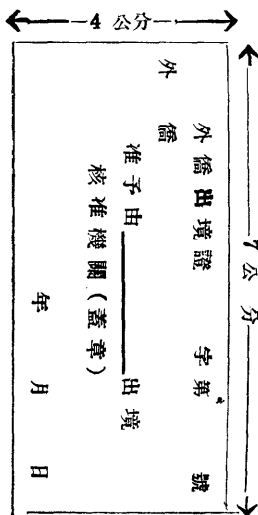 4 公分
7 公分
外僑出境證 字第 號
外僑
准予由 出境
核准機關(蓋章)
年 月 日